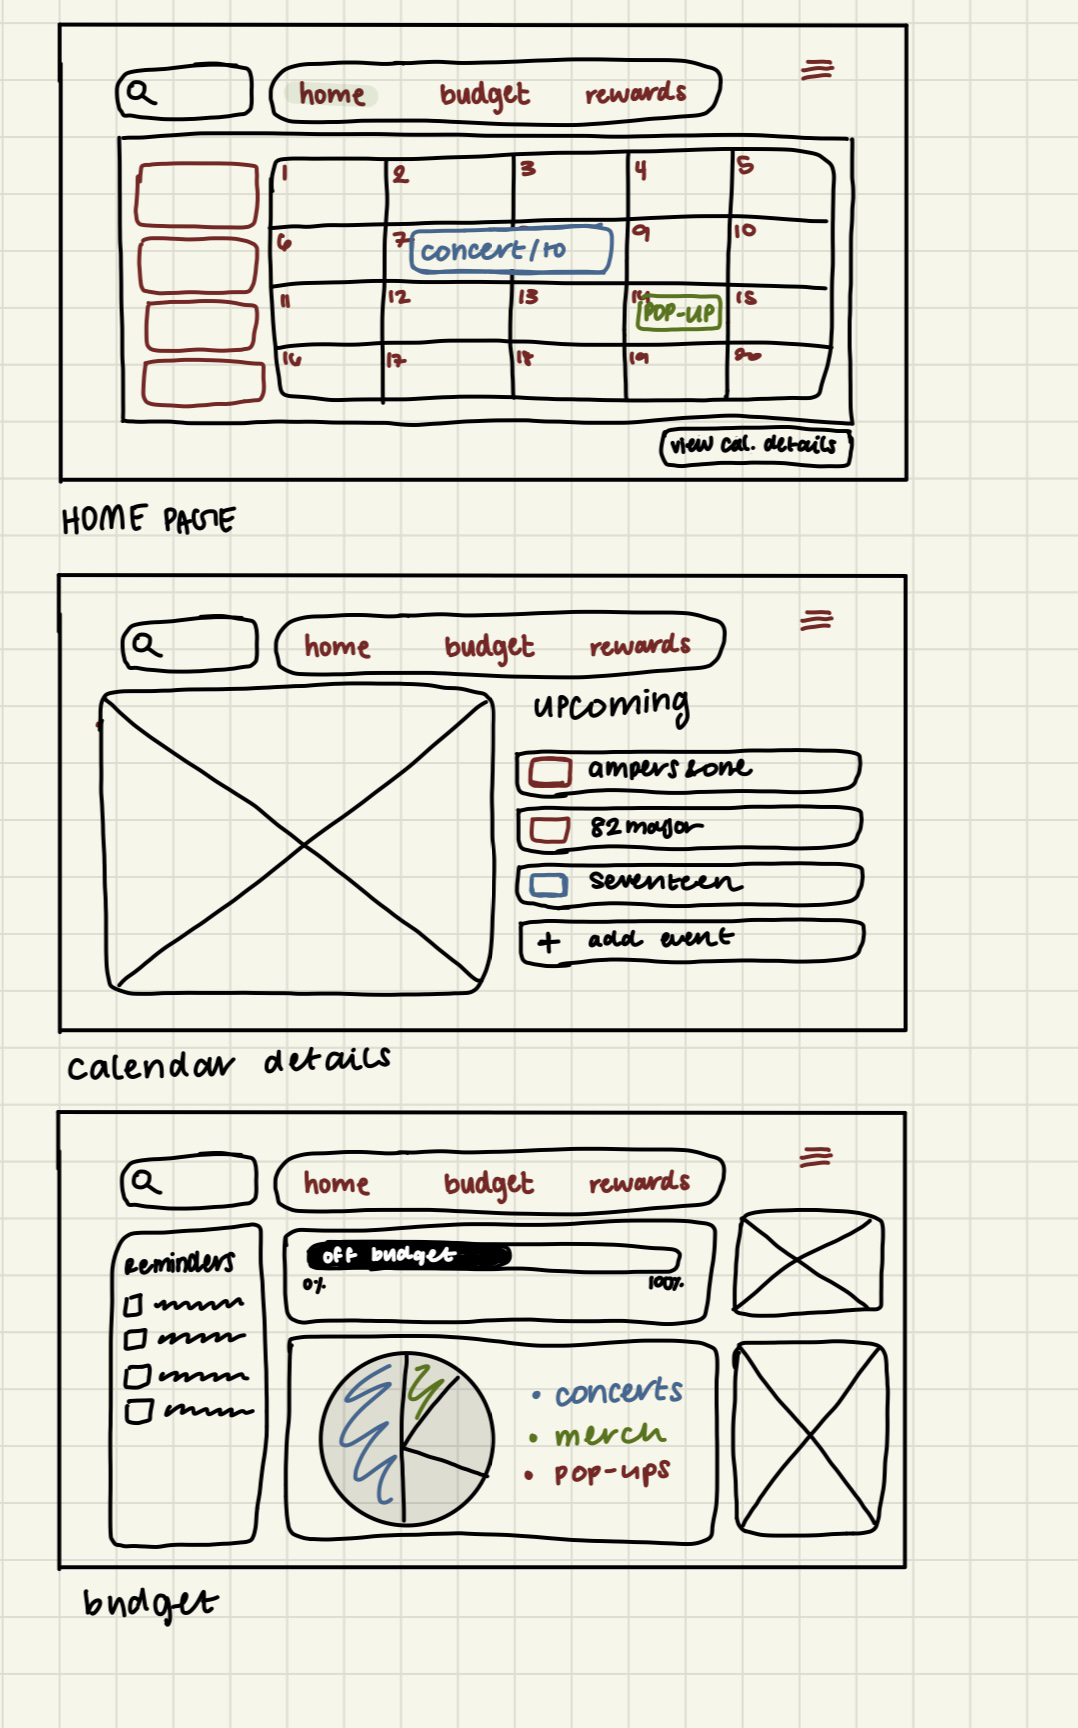 home budget rewards
1 2 3 4 5
6 7 9 10
concert/to
11 12 13 14 15
POP-UP
16 17 18 19 20
view cal. details
HOME PAGE
home budget rewards
upcoming
ampers&one
82major
seventeen
+ add event
calendar details
home budget rewards
Reminders
off budget
0% 100%
• concerts
• merch
• pop-ups
budget